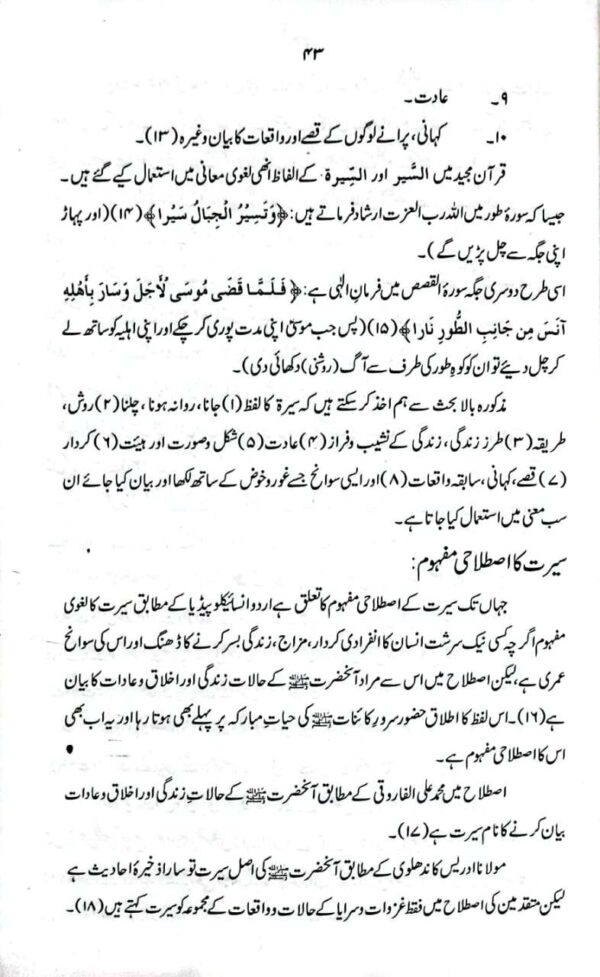 ۴۳
۹۔ عادت۔
۱۰۔ کہانی، پرانے لوگوں کے قصے اور واقعات کا بیان وغیرہ (۱۳)۔
قرآن مجید میں السَّیر اور السِّیرۃ کے الفاظ انھی لغوی معانی میں استعمال کیے گئے ہیں۔
جیسا کہ سورۂ طور میں اللہ رب العزت ارشاد فرماتے ہیں: ﴿وَتَسِيْرُ الْجِبَالُ سَيْرا﴾ (۱۴) (اور پہاڑ
اپنی جگہ سے چل پڑیں گے)۔
اسی طرح دوسری جگہ سورۃ القصص میں فرمانِ الٰہی ہے: ﴿فَلَمَّا قَضٰى مُوسَى لأَجَلَ وَسَارَ بِأَهْلِهِ
آنَسَ مِن جَانِبِ الطُّورِ نَارا﴾ (۱۵) (پس جب موسیٰؑ اپنی مدت پوری کر چکے اور اپنی اہلیہ کو ساتھ لے
کر چل دیئے تو ان کو کوہِ طور کی طرف سے آگ (روشنی) دکھائی دی)۔
مذکورہ بالا بحث سے ہم اخذ کر سکتے ہیں کہ سیرۃ کا لفظ (۱) جانا، روانہ ہونا، چلنا (۲) روش،
طریقہ (۳) طرز زندگی، زندگی کے نشیب و فراز (۴) عادت (۵) شکل وصورت اور ہیئت (۶) کردار
(۷) قصے، کہانی، سابقہ واقعات (۸) اور ایسی سوانح جسے غور و خوض کے ساتھ لکھا اور بیان کیا جائے ان
سب معنی میں استعمال کیا جاتا ہے۔
سیرت کا اصطلاحی مفہوم:
جہاں تک سیرت کے اصطلاحی مفہوم کا تعلق ہے اردو انسائیکلوپیڈیا کے مطابق سیرت کا لغوی
مفہوم اگرچہ کسی نیک سرشت انسان کا انفرادی کردار، مزاج، زندگی بسر کرنے کا ڈھنگ اور اس کی سوانح
عمری ہے، لیکن اصطلاح میں اس سے مراد آنحضرت ﷺ کے حالات زندگی اور اخلاق و عادات کا بیان
ہے (۱۶)۔ اس لفظ کا اطلاق حضور سرورِ کائنات ﷺ کی حیاتِ مبارکہ پر پہلے بھی ہوتا رہا اور یہ اب بھی
اس کا اصطلاحی مفہوم ہے۔
اصطلاح میں محمد علی الفاروقی کے مطابق آنحضرت ﷺ کے حالاتِ زندگی اور اخلاق و عادات
بیان کرنے کا نام سیرت ہے (۱۷)۔
مولانا ادریس کاندھلوی کے مطابق آنحضرت ﷺ کی اصل سیرت تو سارا ذخیرۂ احادیث ہے
لیکن متقدمین کی اصطلاح میں فقط غزوات و سرایا کے حالات و واقعات کے مجموعہ کو سیرت کہتے ہیں (۱۸)۔